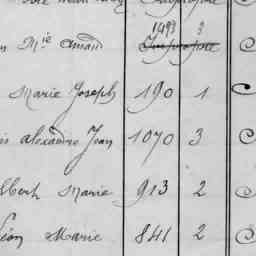 1493 3
Mie amand Impropre
Marie Joseph 190 1
is alexandre Jean 1070 3
lbert Marie 913 2
Léon Marie 841 2